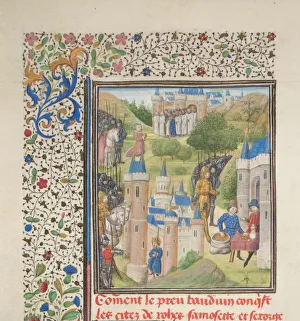 Coment le preu bauduin conqst
les citez de rohes samosette et seroige